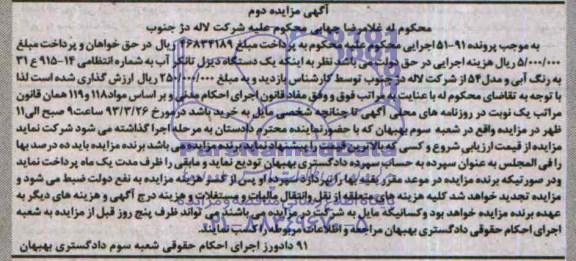 آگهی مزایده دوم
محکوم له غلامرضا جهانی محکوم علیه شرکت لاله دژ جنوب
به موجب پرونده ۹۱-۵۱ اجرایی محکوم علیه محکوم به پرداخت مبلغ ۴۶۸۳۴۱۸۹ ریال در حق خواهان و پرداخت مبلغ
۵/۰۰۰/۰۰۰ ریال هزینه اجرایی در حق دولت می باشد نظر به اینکه یک دستگاه دیزل تانکر آب به شماره انتظامی ۱۴-۹۱۵ ع ۳۱
به رنگ آبی و مدل ۵۴ از شرکت لاله دژ جنوب توسط کارشناس بازدید و به مبلغ ۲۵۰/۰۰۰/۰۰۰ ریال ارزش گذاری شده است لذا
با توجه به تقاضای محکوم له با عنایت به مراتب فوق و وفق مفاد قانون اجرای احکام مدنی و بر اساس مواد ۱۱۸ و ۱۱۹ همان قانون
مراتب یک نوبت در روزنامه های محلی آگهی تا چنانچه شخصی مایل به خرید باشد در مورخ ۹۳/۳/۲۶ ساعت ۹ صبح الی ۱۱
ظهر در مزایده واقع در شعبه سوم بهبهان که با حضور نماینده محترم دادستان به مرحله اجرا گذاشته می شود شرکت نماید
مزایده از قیمت ارزیابی شروع و کسی که بالاترین قیمت را پیشنهاد نماید برنده مزایده می باشد برنده مزایده باید ده درصد بها
را فی المجلس به عنوان سپرده به حساب سپرده دادگستری بهبهان تودیع نماید و مابقی را ظرف مدت یک ماه پرداخت نماید
و در صورتیکه برنده مزایده در موعد مقرر بقیه بها را نپردازد سپرده او پس از کسر هزینه مزایده به نفع دولت ضبط می شود و
مزایده تجدید خواهد شد. کلیه هزینه های متعلقه از نقل و انتقال مالیات و مستغلات و هزینه درج آگهی و هزینه های دیگر به
عهده برنده مزایده خواهد بود و کسانیکه مایل به شرکت در مزایده می باشند می تواند ظرف پنج روز قبل از مزایده به شعبه
اجرای احکام حقوقی دادگستری بهبهان مراجعه و اطلاعات مربوطه را کسب نمایند.
۹۱ دادورز اجرای احکام حقوقی شعبه سوم دادگستری بهبهان